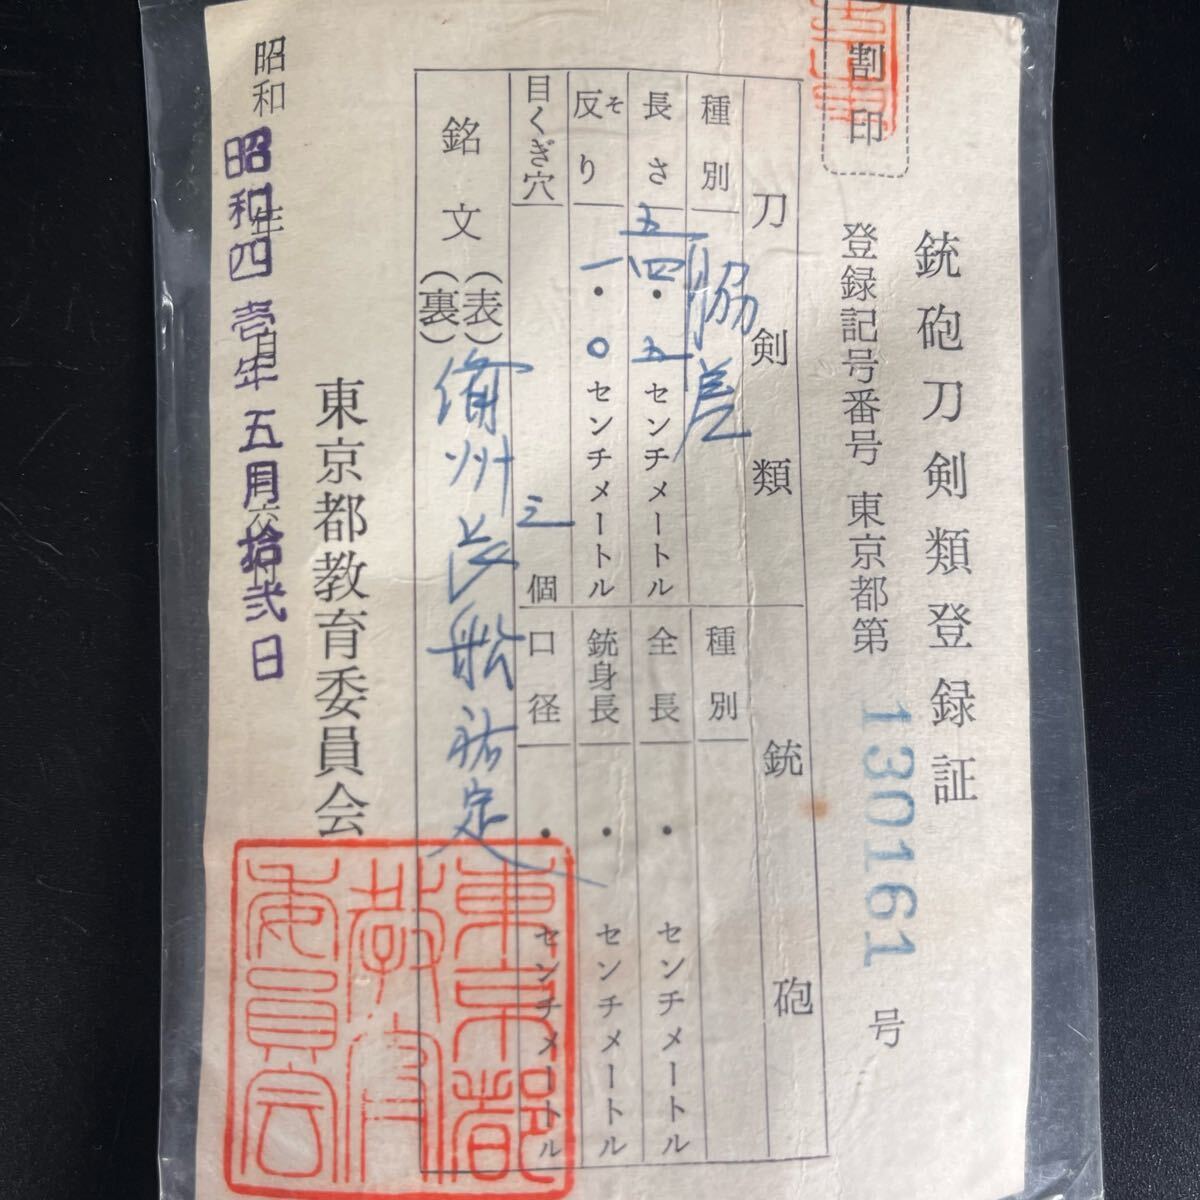 割印
銃砲刀剣類登録証
登録記号番号 東京都第 130161 号
刀剣類
種別 脇差
長さ 五四・五センチメートル
反り そ 一・〇センチメートル
目くぎ穴 三個
銃砲
種別
全長 ・ センチメートル
銃身長 ・ センチメートル
口径 ・ センチメートル
銘文 (表) 備州長船祐定
(裏)
東京都教育委員会
昭和 年 月 交付
昭和四壱年五月拾弐日
東京都
教育
委員会